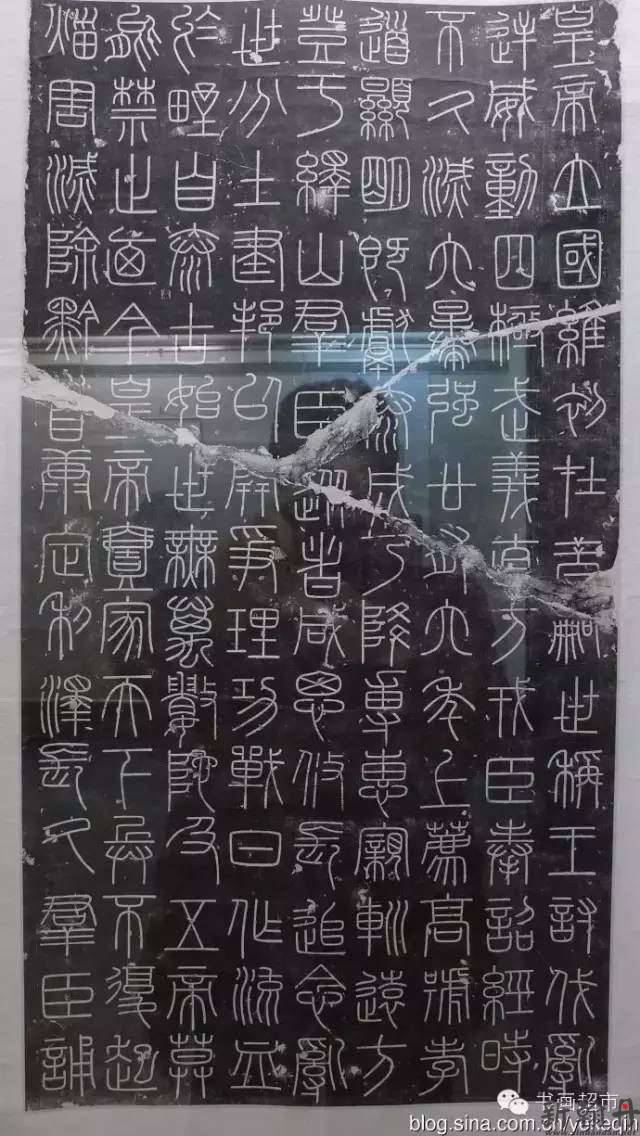 皇帝立國維初在昔嗣世稱王討伐亂
逆威動四極武義直方戎臣奉詔經時
不久滅六暴強廿有六年上薦高號孝
道顯明既獻泰成乃降專惠寴軔遠方
登于繹山羣臣從者咸思攸長追念亂
世分土建邦以開爭理功戰日作流血
於野自泰古始世無萬數陀及五帝莫
能禁止廼今皇帝壹家天下兵不復起
災害滅除黔首康定利澤長久羣臣誦
书画超市
blog.sina.com.cn